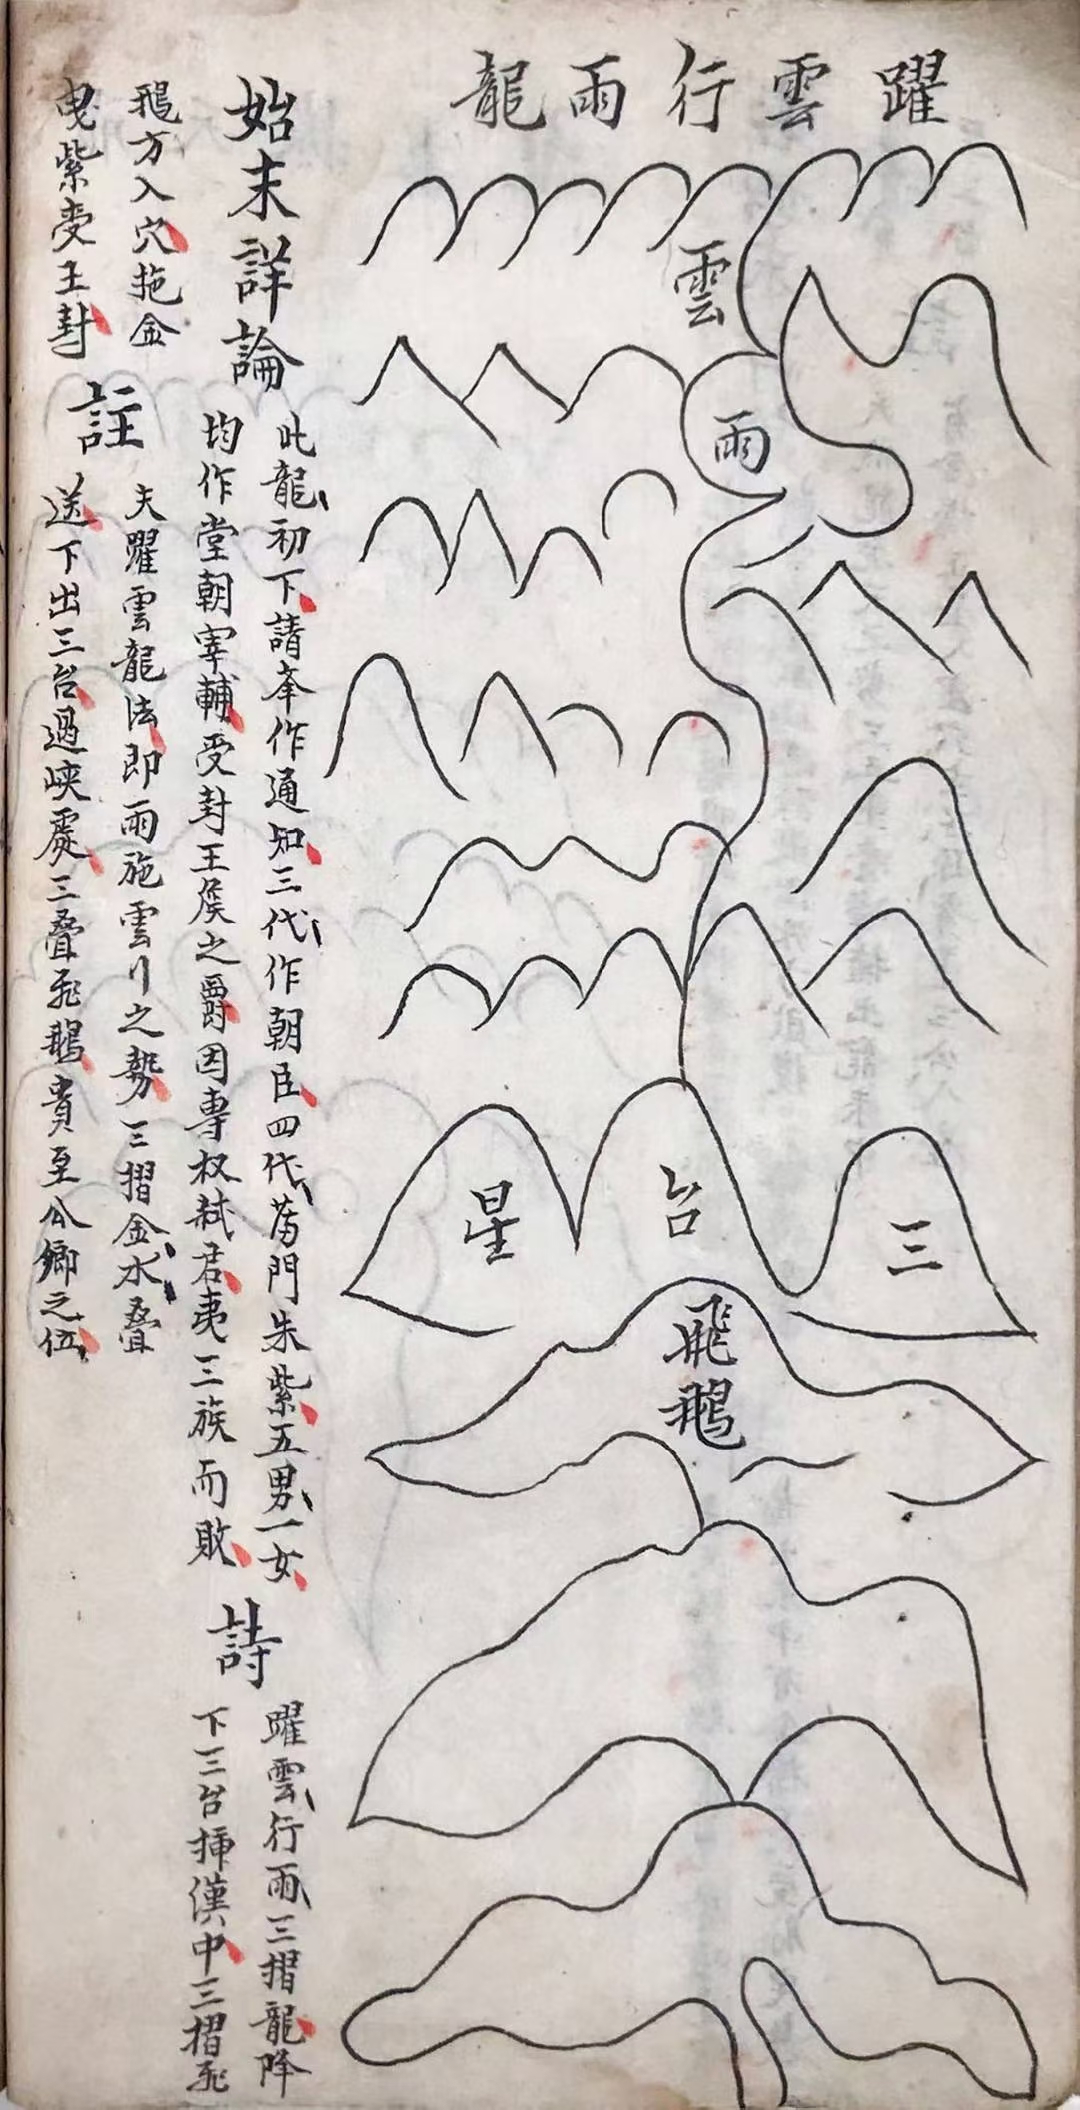 躍雲行雨龍
雲
雨
三台星
飛鵝
始末詳論
此龍初下請峯作通知三代作朝臣四代蓆門朱紫五男一女
均作堂朝宰輔受封王侯之爵因專权弑君夷三族而敗
詩
躍雲行雨三摺龍降
下三台揷漢中三摺飛
鵝方入穴拖金
曳紫受王封
註
夫躍雲龍法即雨施雲行之勢三摺金水叠
送下出三台過峽處三叠飛鵝貴至公卿之伍